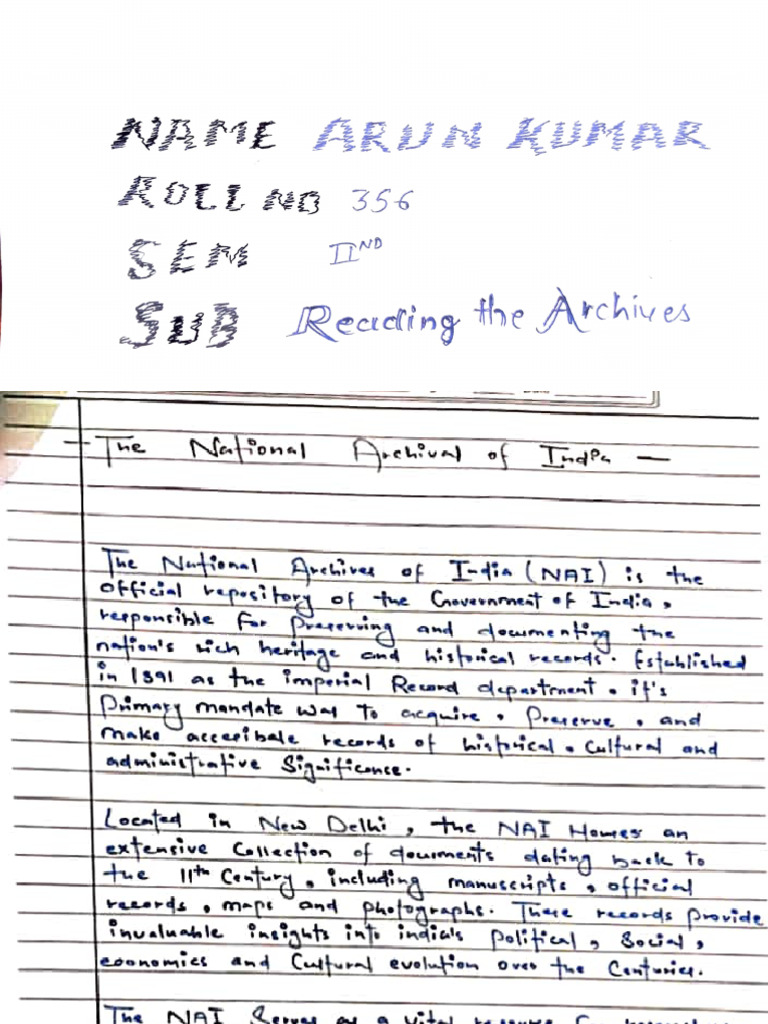 NAME ARUN KUMAR
ROLL NO 356
SEM II ND
SUB Reading the Archives
The National Archival of India —
The National Archives of India (NAI) is the
official repository of the Government of India,
responsible for Preserving and documenting the
nation's rich heritage and historical records. Established
in 1891 as the imperial Record department. it's
Primary mandate was to acquire, Preserve, and
make accesibale records of historical, Cultural and
administrative Significanse.
Located in New Delhi, the NAI Homes an
extensive Collection of documents dating back to
the 11th Century, including manuscripts, official
records, maps and photographs. These records provide
invaluable insights into india's Political, Social,
economics and Cultural evolution over the Centuries.
The NAI Serves as a vital resource for